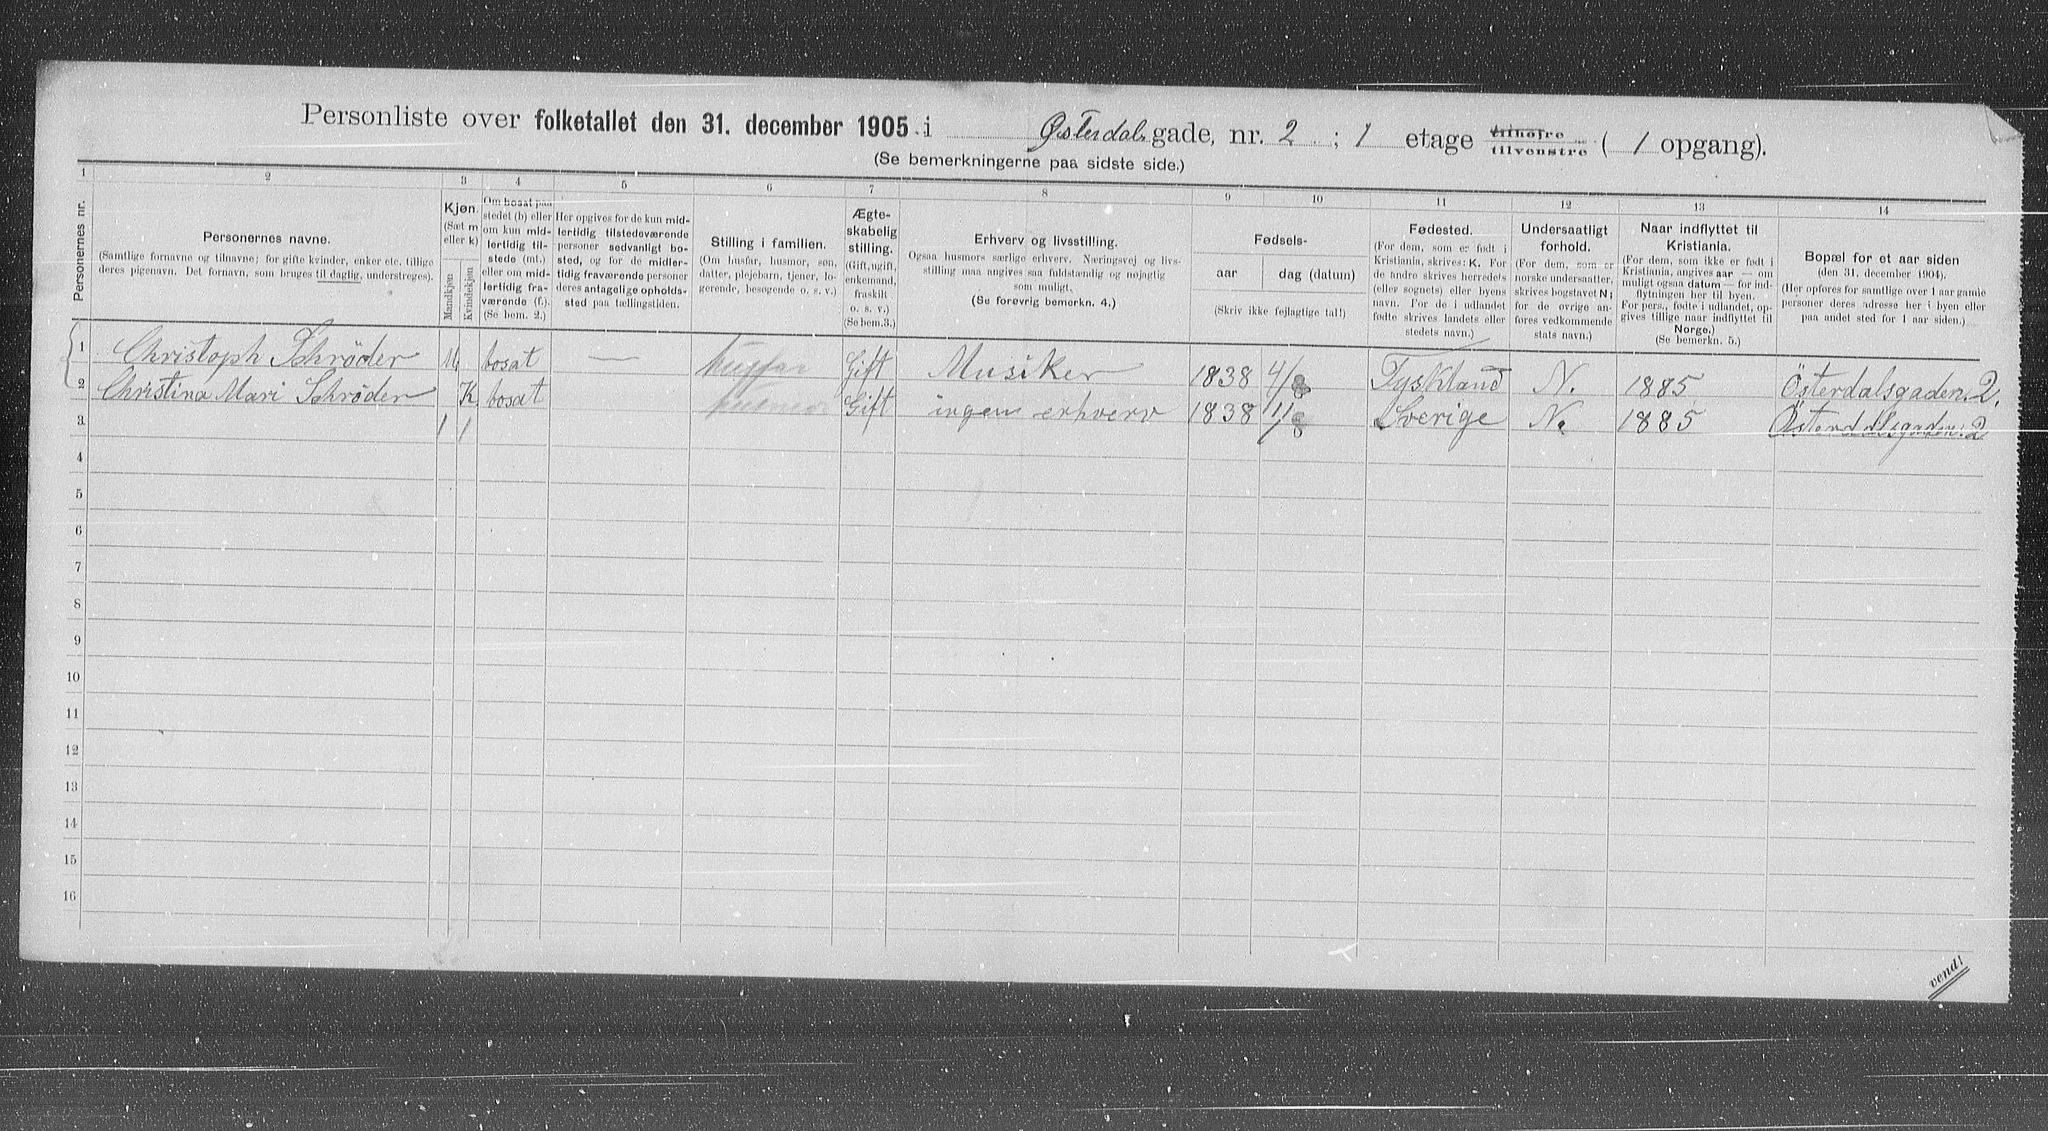 Personliste over folketallet den 31. december 1905 i Østerdalsgade, nr. 2 ; 1 etage tilhøire tilvenstre ( 1 opgang).
(Se bemerkningerne paa sidste side.)
1 2 3 4 5 6 7 8 9 10 11 12 13 14
Personernes nr.
Personernes navne.
(Samtlige fornavne og tilnavne; for gifte kvinder, enker etc. tillige
deres pigenavn. Det fornavn, som bruges til daglig, understreges).
Kjøn.
(Sæt m
eller k)
Mandkjøn
Kvindekjøn
Om bosat paa
stedet (b) eller
om kun mid-
lertidig til-
stede (mt.)
eller om mid-
lertidig fra-
værende (f.).
(Se bem. 2.)
Her opgives for de kun mid-
lertidig tilstedeværende
personer sedvanlig bo-
sted, og for de midler-
tidig fraværende personer
deres antagelige opholds-
sted paa tællingstiden.
Stilling i familien.
(Om husfar, husmor, søn,
datter, plejebarn, tjener, lo-
gerende, besøgende o. s. v.)
Ægte-
skabelig
stilling.
(Gift, ugift,
enkemand,
fraskilt
o. s. v.)
(Se bem. 3.)
Erhverv og livsstilling.
Ogsaa husmors særlige erhverv. Næringsvej og livs-
stilling maa angives saa fuldstændig og nøjagtig
som muligt.
(Se forøvrig bemerkn. 4.)
Fødsels-
aar dag (datum)
(Skriv ikke fejlagtige tal!)
Fødested.
(For dem, som er født i
Kristiania, skrives: K. For
de andre skrives herredets
(eller sognets) eller byens
navn. For de i udlandet
fødte skrives landets eller
stedets navn.)
Undersaatligt
forhold.
(For dem, som er
norske undersaatter,
skrives bogstavet N;
for de øvrige an-
føres vedkommende
stats navn.)
Naar indflyttet til
Kristiania.
(For dem, som ikke er født i
Kristiania, angives aar — om
muligt ogsaa datum — for ind-
flytningen her til byen.
For pers., fødte i udlandet, op-
gives tillige naar indflyttet til
Norge.)
(Se bemerkn. 5.)
Bopæl for et aar siden
(den 31. december 1904).
(Her opføres for samtlige over 1 aar gamle
personer deres adresse her i byen eller
paa andet sted for 1 aar siden.)
1 Christoph Schrøder M. bosat — husfar Gift Musiker 1838 4/8 Tyskland N. 1885 Österdalsgaden. 2.
2 Christina Mari Schrøder K. bosat husmor Gift ingen erhverv 1838 11/8 Sverige N. 1885 Österdalsgaden. 2
3 1 1
4
5
6
7
8
9
10
11
12
13
14
15
16
vend!